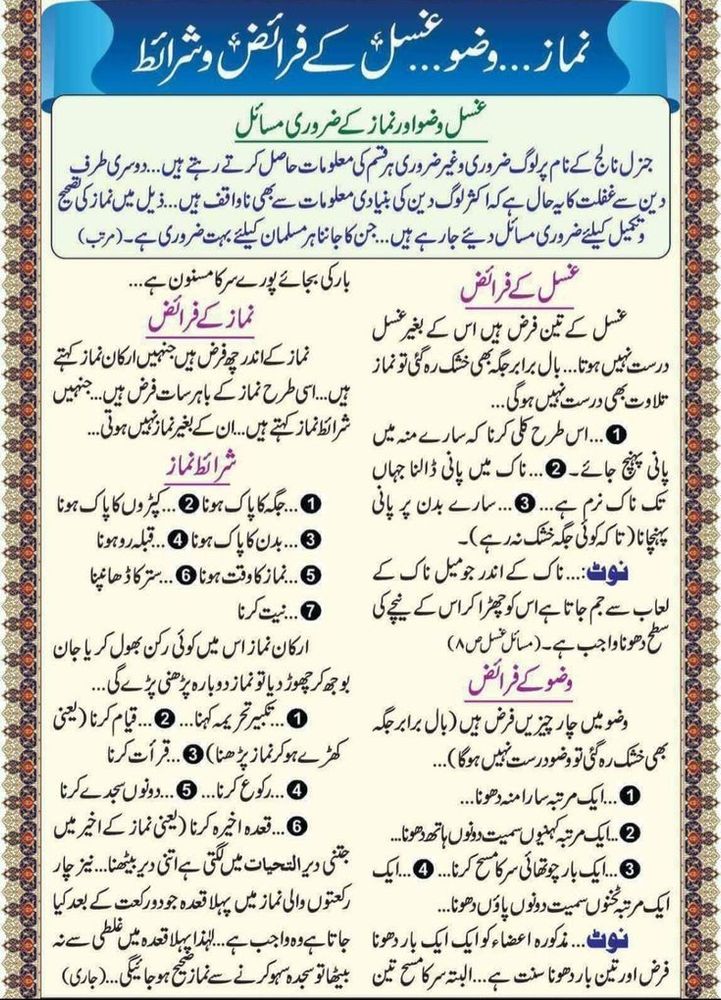 نماز... وضو... غسل کے فرائض و شرائط
غسل وضو اور نماز کے ضروری مسائل
جنرل نالج کے نام پر لوگ ضروری و غیر ضروری ہر قسم کی معلومات حاصل کرتے رہتے ہیں... دوسری طرف
دین سے غفلت کا یہ حال ہے کہ اکثر لوگ دین کی بنیادی معلومات سے بھی ناواقف ہیں... ذیل میں نماز کی تصحیح
و تکمیل کیلئے ضروری مسائل دیئے جا رہے ہیں... جن کا جاننا ہر مسلمان کیلئے بہت ضروری ہے۔ (مرتب)
غسل کے فرائض
غسل کے تین فرض ہیں اس کے بغیر غسل
درست نہیں ہوتا... بال برابر جگہ بھی خشک رہ گئی تو نماز
تلاوت بھی درست نہیں ہوگی...
❶... اس طرح کلی کرنا کہ سارے منہ میں
پانی پہنچ جائے۔ ❷... ناک میں پانی ڈالنا جہاں
تک ناک نرم ہے... ❸... سارے بدن پر پانی
پہنچانا (تاکہ کوئی جگہ خشک نہ رہے)۔
نوٹ:... ناک کے اندر جو میل ناک کے
لعاب سے جم جاتا ہے اس کو چھڑا کر اس کے نیچے کی
سطح دھونا واجب ہے۔ (مسائل غسل ص ۸)
وضو کے فرائض
وضو میں چار چیزیں فرض ہیں (بال برابر جگہ
بھی خشک رہ گئی تو وضو درست نہیں ہوگا)...
❶... ایک مرتبہ سارا منہ دھونا...
❷... ایک مرتبہ کہنیوں سمیت دونوں ہاتھ دھونا...
❸... ایک بار چوتھائی سر کا مسح کرنا... ❹... ایک
ایک مرتبہ ٹخنوں سمیت دونوں پاؤں دھونا...
نوٹ... مذکورہ اعضاء کو ایک ایک بار دھونا
فرض اور تین بار دھونا سنت ہے... البتہ سر کا مسح تین
بار کی بجائے پورے سر کا مسنون ہے...
نماز کے فرائض
نماز کے اندر چھ فرض ہیں جنہیں ارکان نماز کہتے
ہیں... اسی طرح نماز کے باہر سات فرض ہیں... جنہیں
شرائط نماز کہتے ہیں... ان کے بغیر نماز نہیں ہوتی...
شرائط نماز
❶... جگہ کا پاک ہونا ❷... کپڑوں کا پاک ہونا
❸... بدن کا پاک ہونا ❹... قبلہ رو ہونا
❺... نماز کا وقت ہونا ❻... ستر کا ڈھانپنا
❼... نیت کرنا
ارکان نماز اس میں کوئی رکن بھول کر یا جان
بوجھ کر چھوڑ دیا تو نماز دوبارہ پڑھنی پڑے گی...
❶... تکبیر تحریمہ کہنا... ❷... قیام کرنا (یعنی
کھڑے ہو کر نماز پڑھنا) ❸... قرأت کرنا
❹... رکوع کرنا... ❺... دونوں سجدے کرنا
❻... قعدہ اخیرہ کرنا (یعنی نماز کے اخیر میں
جتنی دیر التحیات میں لگتی ہے اتنی دیر بیٹھنا... نیز چار
رکعتوں والی نماز میں پہلا قعدہ جو دو رکعت کے بعد کیا
جاتا ہے وہ واجب ہے... لہٰذا پہلا قعدہ میں غلطی سے نہ
بیٹھا تو سجدہ سہو کرنے سے نماز صحیح ہو جائیگی... (جاری)